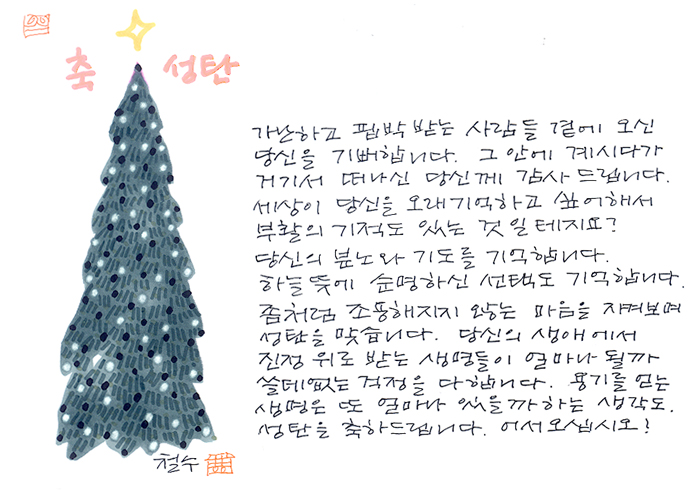 축 성탄
가난하고 핍박 받는 사람들 곁에 오신
당신을 기뻐합니다. 그 안에 계시다가
거기서 떠나신 당신께 감사 드립니다.
세상이 당신을 오래기억하고 싶어해서
부활의 기적도 있는 것 일테지요?
당신의 분노와 기도를 기억합니다.
하늘 뜻에 순명하신 선택도 기억합니다.
좀처럼 조용해지지 않는 마음을 지켜보며
성탄을 맞습니다. 당신의 생애에서
진정 위로 받는 생명들이 얼마나 될까
쓸데없는 걱정을 다합니다. 용기를 얻는
생명은 또 얼마나 있을까하는 생각도.
성탄을 축하드립니다. 어서오십시오!
철수